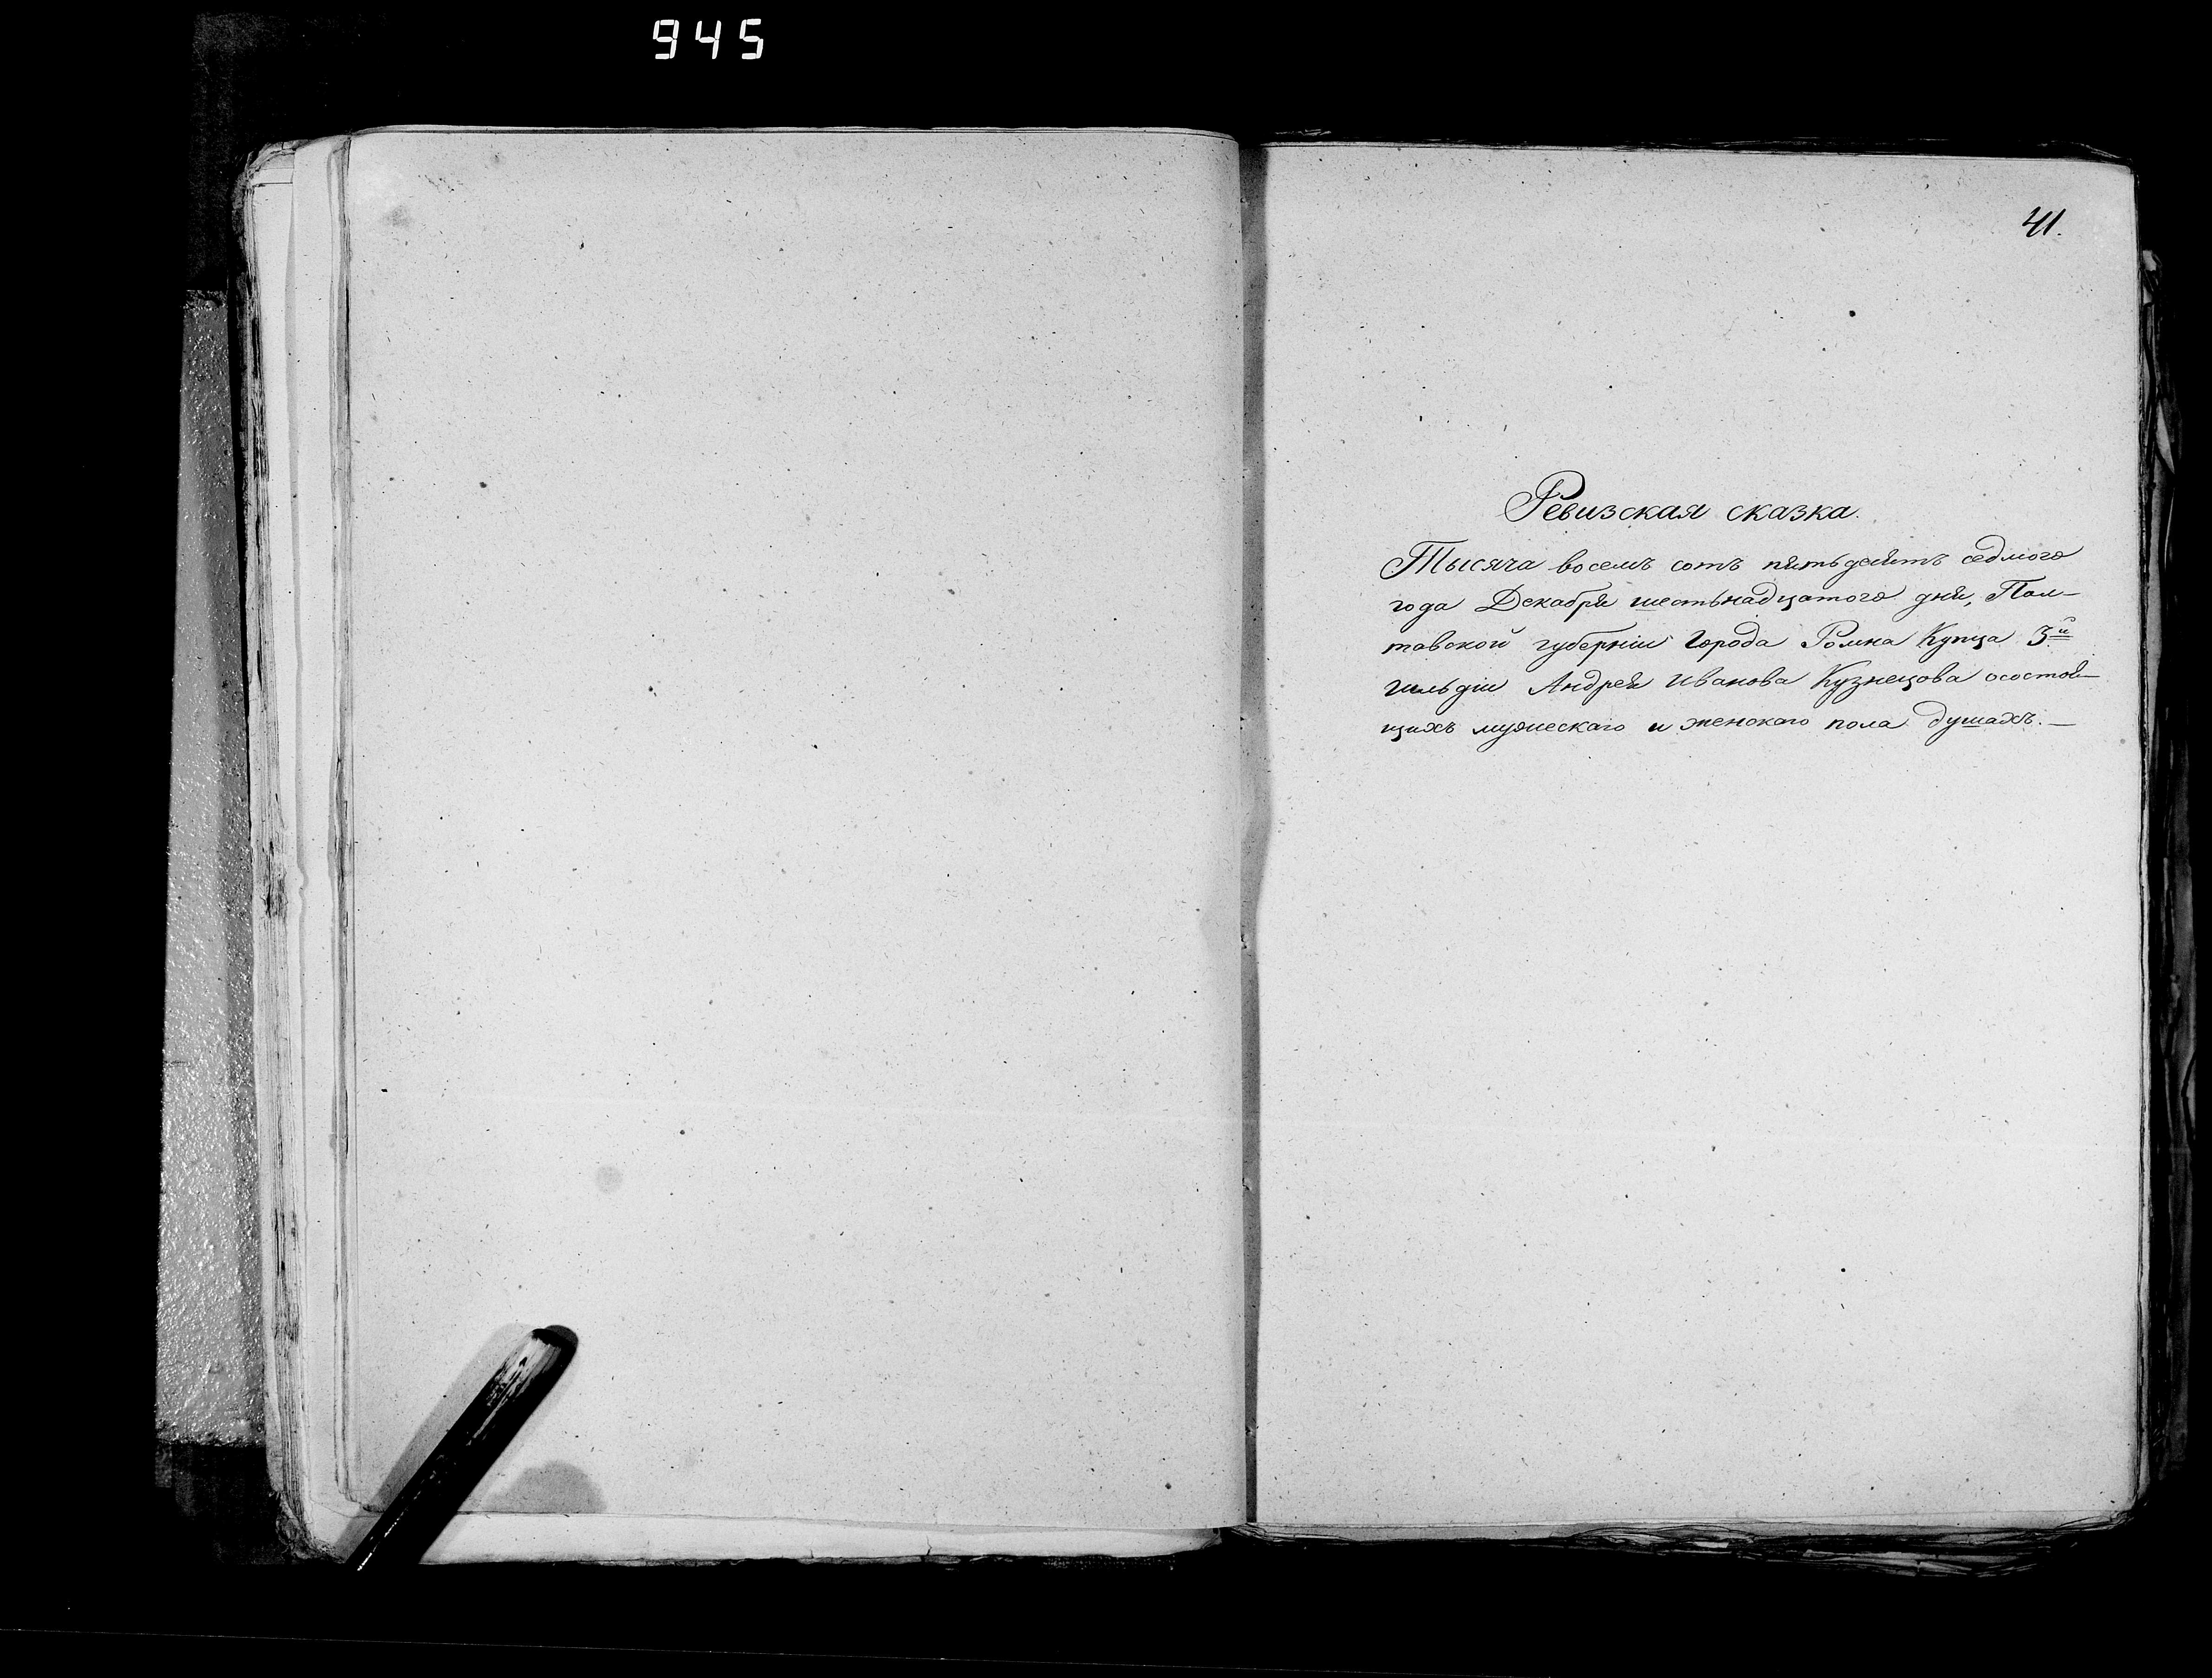 945
41.
Ревизская сказка.
Тысяча восемъ сотъ пятьдесятъ седмого
года Декабря шестьнадцатого дня, Пол-
тавской губерніи Города Ромна Купца 3й
гильдіи Андрея Иванова Кузнецова осостоя-
щихъ мужескаго и женскаго пола душахъ. —